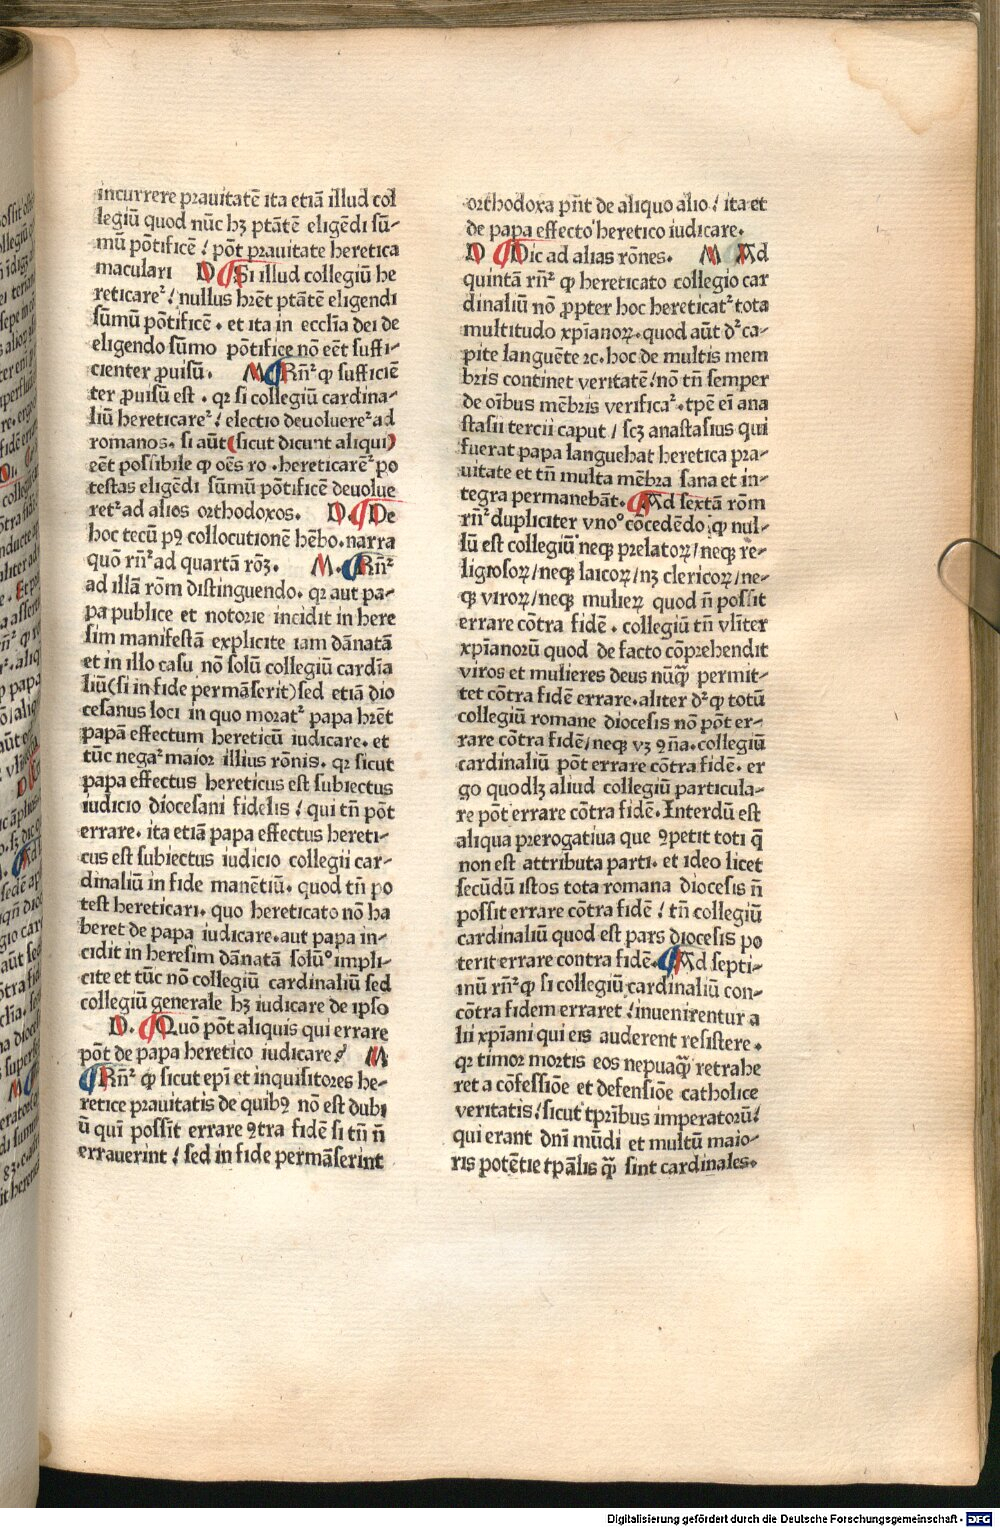 incurrere prauitatē ita etiā illud col
legiū quod nūc hꝫ ptātē eligēdi sū-
mū pōtificē / pōt prauitate heretica
maculari D Si illud collegiū he
reticaret᷑ / nullus hr̄et ptātē eligendi
sūmū pōtificē . et ita in eccl̄ia dei de
eligendo sūmo pōtifice nō eēt suffi-
cienter ꝓuisū. M Rn̄r᷑ ꝙ sufficiē
ter ꝓuisū est . qꝛ si collegiū cardina-
liū hereticaret᷑ / electio deuolueret᷑ ad
romanos. si aūt (sicut dicunt aliqui)
eēt possibile ꝙ oēs ro . hereticarēt᷑ po
testas eligēdi sūmū pōtificē deuolue
ret᷑ ad alios orthodoxos. D. De
hoc tecū pꝰ collocutionē hēbo. narra
quō rn̄r᷑ ad quartā rōꝫ. M. Rn̄r᷑
ad illā rōm distinguendo. qꝛ aut pa-
pa publice et notorie incidit in here
sim manifestā explicite iam dānatā
et in illo casu nō solū collegiū cardīa
liū (si in fide permāserit) sed etiā dio
cesanus loci in quo morat᷑ papa hr̄et
papā effectum hereticū iudicare. et
tūc negat᷑ maior illius rōnis. qꝛ sicut
papa effectus hereticus est subiectus
iudicio diocesani fidelis / qui tn̄ pōt
errare. ita etiā papa effectus hereti-
cus est subiectus iudicio collegii car-
dinaliū in fide manētiū. quod tn̄ po
test hereticari. quo hereticato nō ha
beret de papa iudicare. aut papa in-
cidit in heresim dānatā solū impli-
cite et tūc nō collegiū cardinaliū sed
collegiū generale hꝫ iudicare de ipso
D. Quō pōt aliquis qui errare
pōt de papa heretico iudicare / M
Rn̄r᷑ ꝙ sicut ep̄i et inquisitores he-
retice prauitatis de quibꝰ nō est dubi
ū quī possīt errare ꝯtra fidē si tn̄ n̄
errauerint / sed in fide permāserint
orthodoxa pn̄t de aliquo alio / ita et
de papa effecto heretico iudicare.
D Dic ad alias rōnes. M Ad
quintā rn̄r᷑ ꝙ hereticato collegio car
dinaliū nō ꝓpter hoc hereticat᷑ tota
multitudo xp̄ianoꝝ. quod aūt dr᷑ ca-
pite languēte ⁊c. hoc de multis mem
bris continet veritatē / nō tn̄ semper
de oībus mēbris verificat᷑. tpē eī ana
stasii tercii caput / scꝫ anastasius qui
fuerat papa languebat heretica pra-
uitate et tn̄ multa mēbra sana et in-
tegra permanebāt. Ad sextā rōm
rn̄r᷑ dupliciter vno° cōcedēdo ꝙ nul-
lū est collegiū neqꝫ prelatoꝝ / neqꝫ re-
ligiosoꝝ / neqꝫ laicoꝝ / nꝫ clericoꝝ / ne-
qꝫ viroꝝ / neqꝫ mulieꝝ quod n̄ possit
errare cōtra fidē . collegiū tn̄ vl̄iter
xp̄ianorū quod de facto cōprehendit
viros et mulieres deus nūꝙ̄ permit-
tet cōtra fidē errare. aliter dr᷑ ꝙ totū
collegiū romane diocesis nō pōt er-
rare cōtra fidē / neqꝫ vꝫ ꝯn̄a. collegiū
cardinaliū pōt errare cōtra fidē. er
go quodlꝫ aliud collegiū particula-
re pōt errare cōtra fidē. Interdū est
aliqua prerogatiua que ꝯpetit toti q̄
non est attributa parti. et ideo licet
secūdū istos tota romana diocesis n̄
possit errare cōtra fidē / tn̄ collegiū
cardinaliū quod est pars diocesis po
terit errare contra fidē. Ad septi-
mū rn̄r᷑ ꝙ si collegiū cardinaliū con-
cōtra fidem erraret / inuenirentur a
lii xp̄iani qui eis auderent resistere.
qꝛ timor mortis eos nepuaꝙ̄ retrahe
ret a cōfessiōe et defensiōe catholice
veritatis / sicut tp̄ribus imperatorū /
qui erant dn̄i mūdi et multū maio-
ris potētie tp̄alis ꝙ̄ sint cardinales.
Digitalisierung gefördert durch die Deutsche Forschungsgemeinschaft - DFG